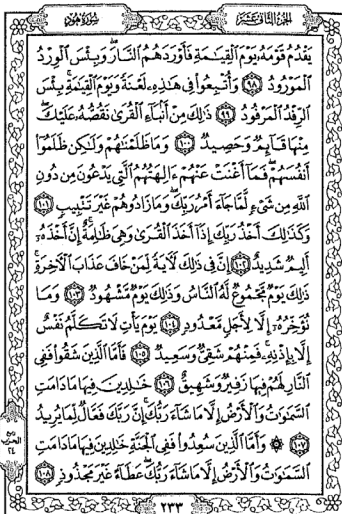 الجزء الثاني عشر سورة هود
يَقْدُمُ قَوْمَهُۥ يَوْمَ ٱلْقِيَٰمَةِ فَأَوْرَدَهُمُ ٱلنَّارَ ۖ وَبِئْسَ ٱلْوِرْدُ
ٱلْمَوْرُودُ ٩٨ وَأُتْبِعُوا۟ فِى هَٰذِهِۦ لَعْنَةً وَيَوْمَ ٱلْقِيَٰمَةِ ۚ بِئْسَ
ٱلرِّفْدُ ٱلْمَرْفُودُ ٩٩ ذَٰلِكَ مِنْ أَنۢبَآءِ ٱلْقُرَىٰ نَقُصُّهُۥ عَلَيْكَ ۖ
مِنْهَا قَآئِمٌ وَحَصِيدٌ ١٠٠ وَمَا ظَلَمْنَٰهُمْ وَلَٰكِن ظَلَمُوٓا۟
أَنفُسَهُمْ ۖ فَمَآ أَغْنَتْ عَنْهُمْ ءَالِهَتُهُمُ ٱلَّتِى يَدْعُونَ مِن دُونِ
ٱللَّهِ مِن شَىْءٍ لَّمَّا جَآءَ أَمْرُ رَبِّكَ ۖ وَمَا زَادُوهُمْ غَيْرَ تَتْبِيبٍ ١٠١
وَكَذَٰلِكَ أَخْذُ رَبِّكَ إِذَآ أَخَذَ ٱلْقُرَىٰ وَهِىَ ظَٰلِمَةٌ ۚ إِنَّ أَخْذَهُۥٓ
أَلِيمٌ شَدِيدٌ ١٠٢ إِنَّ فِى ذَٰلِكَ لَءَايَةً لِّمَنْ خَافَ عَذَابَ ٱلْءَاخِرَةِ ۚ
ذَٰلِكَ يَوْمٌ مَّجْمُوعٌ لَّهُ ٱلنَّاسُ وَذَٰلِكَ يَوْمٌ مَّشْهُودٌ ١٠٣ وَمَا
نُؤَخِّرُهُۥٓ إِلَّا لِأَجَلٍ مَّعْدُودٍ ١٠٤ يَوْمَ يَأْتِ لَا تَكَلَّمُ نَفْسٌ
إِلَّا بِإِذْنِهِۦ ۚ فَمِنْهُمْ شَقِىٌّ وَسَعِيدٌ ١٠٥ فَأَمَّا ٱلَّذِينَ شَقُوا۟ فَفِى
ٱلنَّارِ لَهُمْ فِيهَا زَفِيرٌ وَشَهِيقٌ ١٠٦ خَٰلِدِينَ فِيهَا مَا دَامَتِ
ٱلسَّمَٰوَٰتُ وَٱلْأَرْضُ إِلَّا مَا شَآءَ رَبُّكَ ۚ إِنَّ رَبَّكَ فَعَّالٌ لِّمَا يُرِيدُ
١٠٧ ۞ وَأَمَّا ٱلَّذِينَ سُعِدُوا۟ فَفِى ٱلْجَنَّةِ خَٰلِدِينَ فِيهَا مَا دَامَتِ
ٱلسَّمَٰوَٰتُ وَٱلْأَرْضُ إِلَّا مَا شَآءَ رَبُّكَ ۖ عَطَآءً غَيْرَ مَجْذُوذٍ ١٠٨
ربع
الحزب
٢٤
٢٣٣